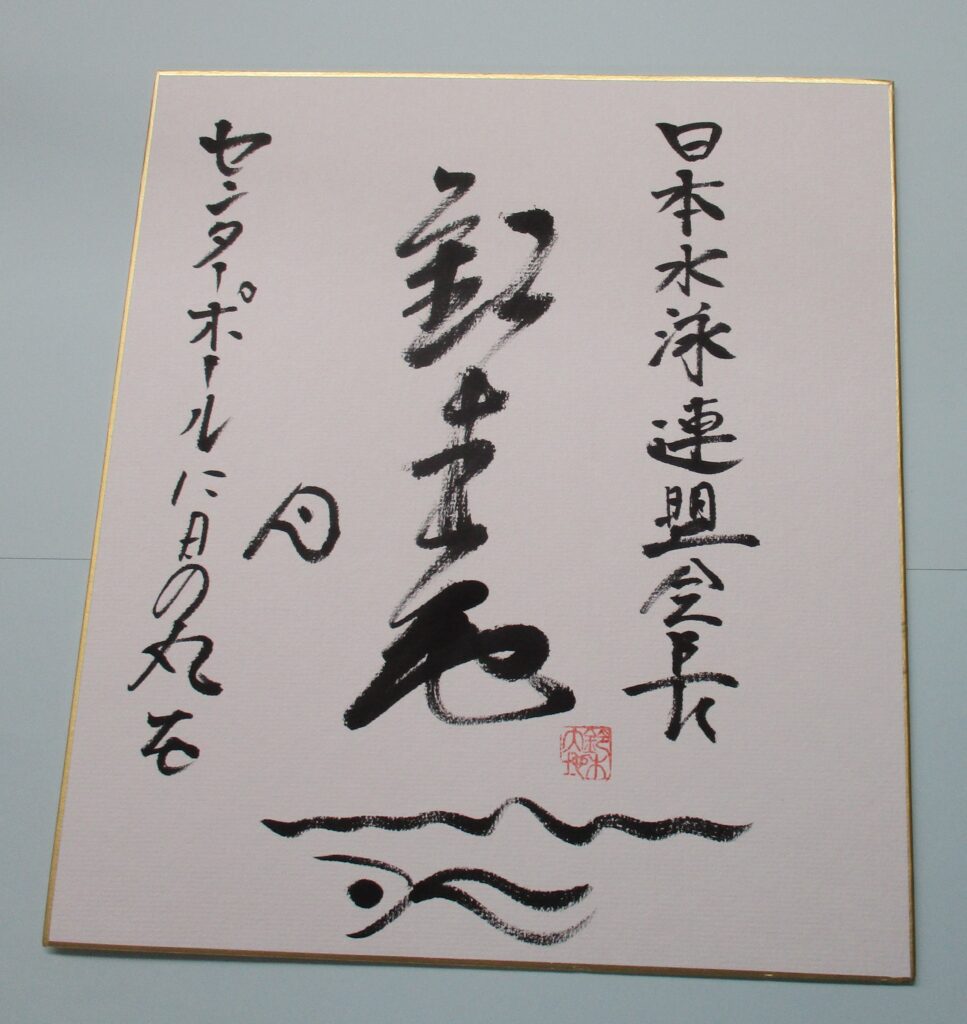 日本水泳連盟会長
鈴木大地
センターポールに日の丸を
鈴木大地